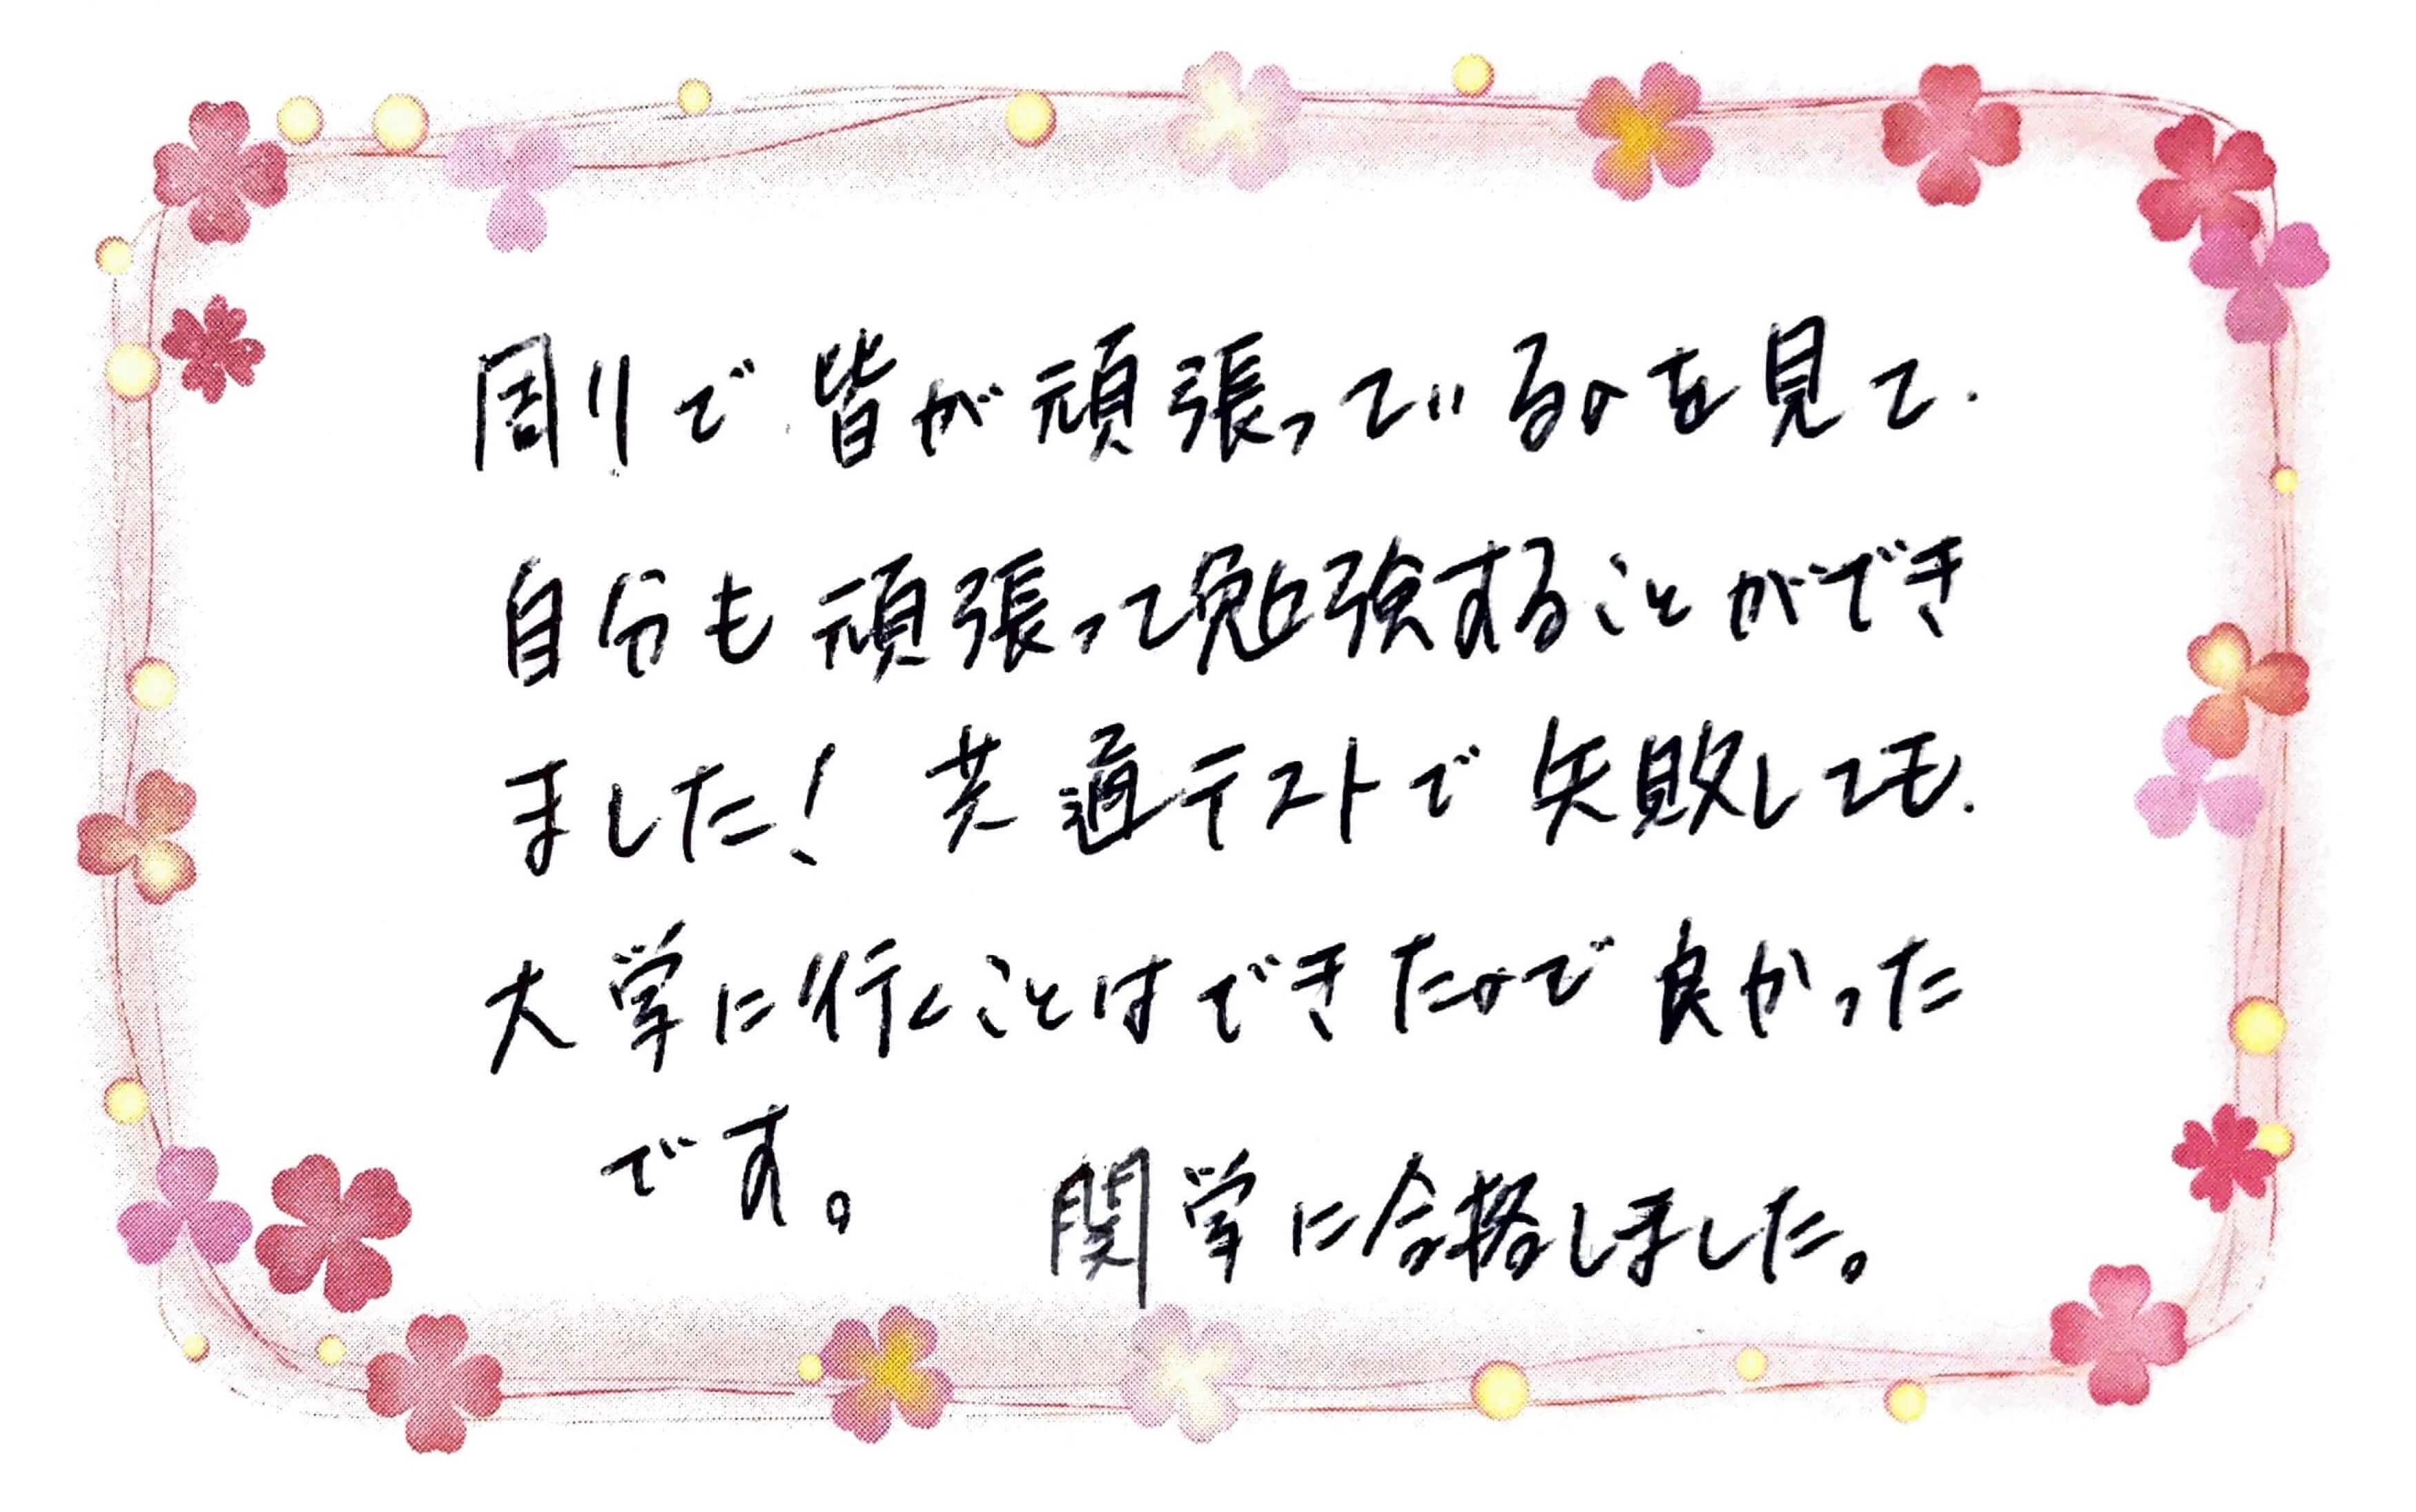 周りで皆が頑張っているのを見て、
自分も頑張って勉強することができ
ました！共通テストで失敗しても、
大学に行くことはできたので良かった
です。 関学に合格しました。